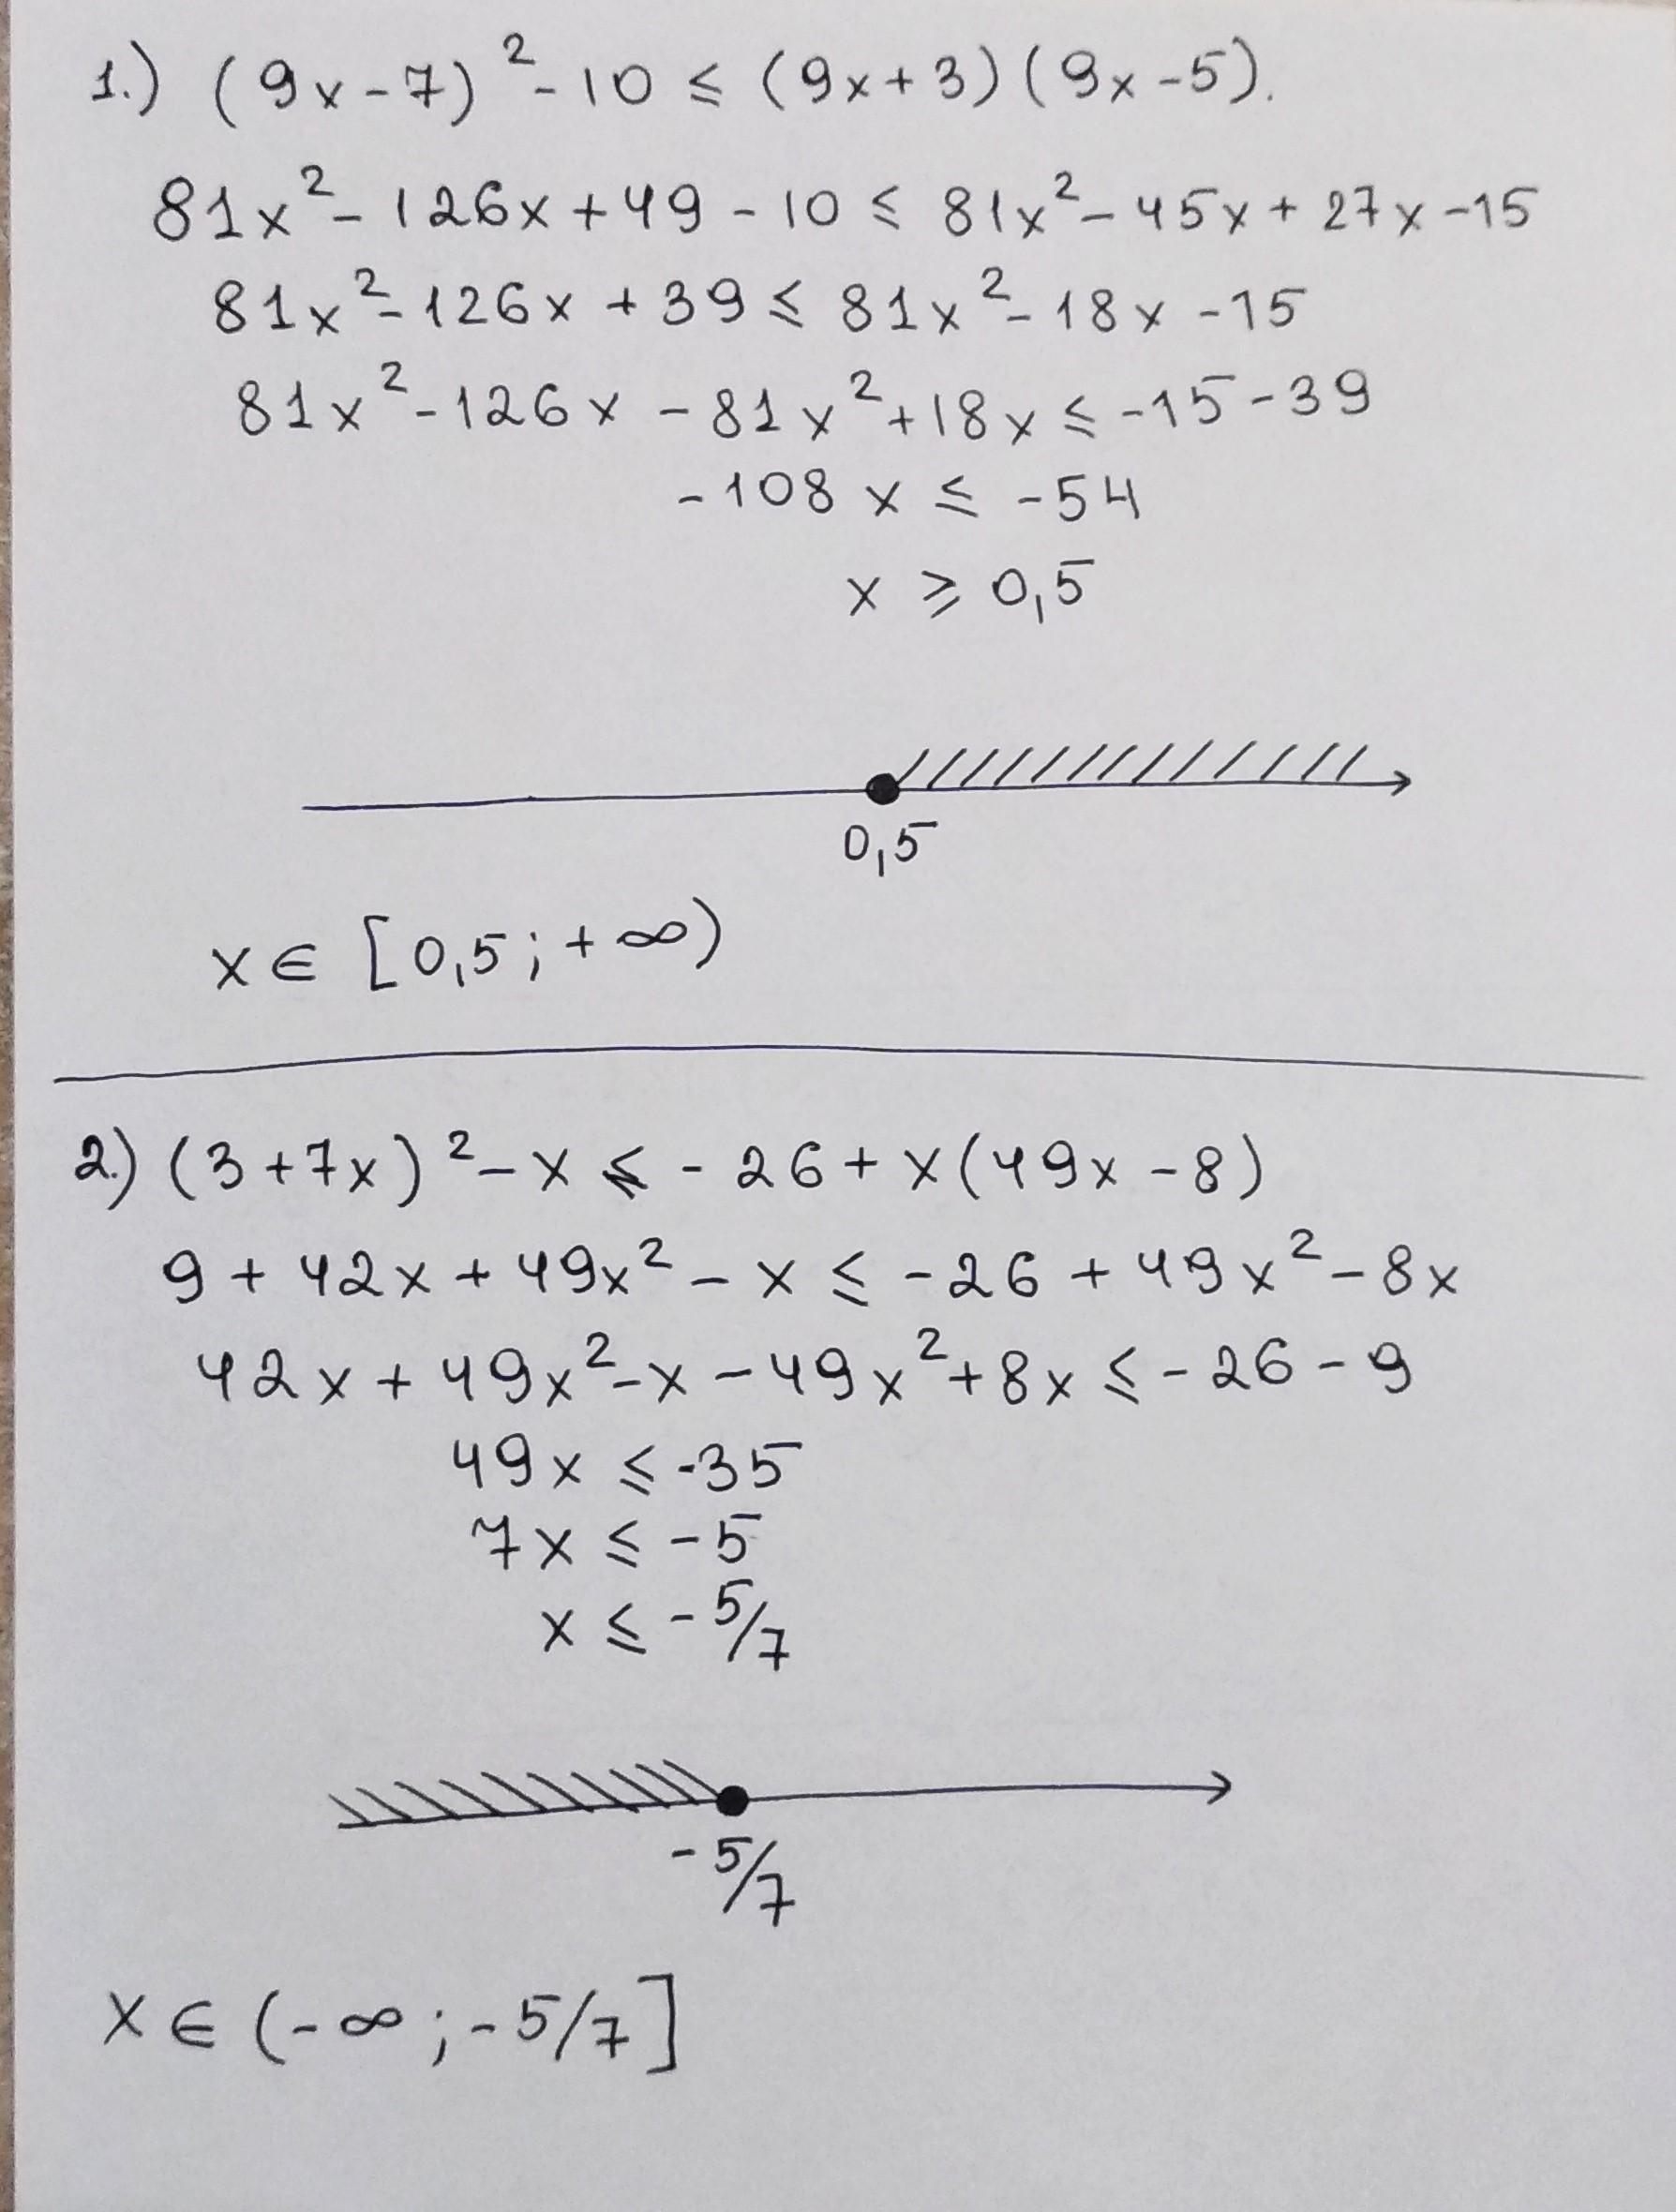 1.) (9x-7)² - 10 ≤ (9x+3)(9x-5).
81x² - 126x + 49 - 10 ≤ 81x² - 45x + 27x - 15
81x² - 126x + 39 ≤ 81x² - 18x - 15
81x² - 126x - 81x² + 18x ≤ -15 - 39
-108x ≤ -54
x ≥ 0,5
0,5
x ∈ [0,5; +∞)
2.) (3+7x)² - x ≤ -26 + x(49x-8)
9 + 42x + 49x² - x ≤ -26 + 49x² - 8x
42x + 49x² - x - 49x² + 8x ≤ -26 - 9
49x ≤ -35
7x ≤ -5
x ≤ -5/7
-5/7
x ∈ (-∞; -5/7]